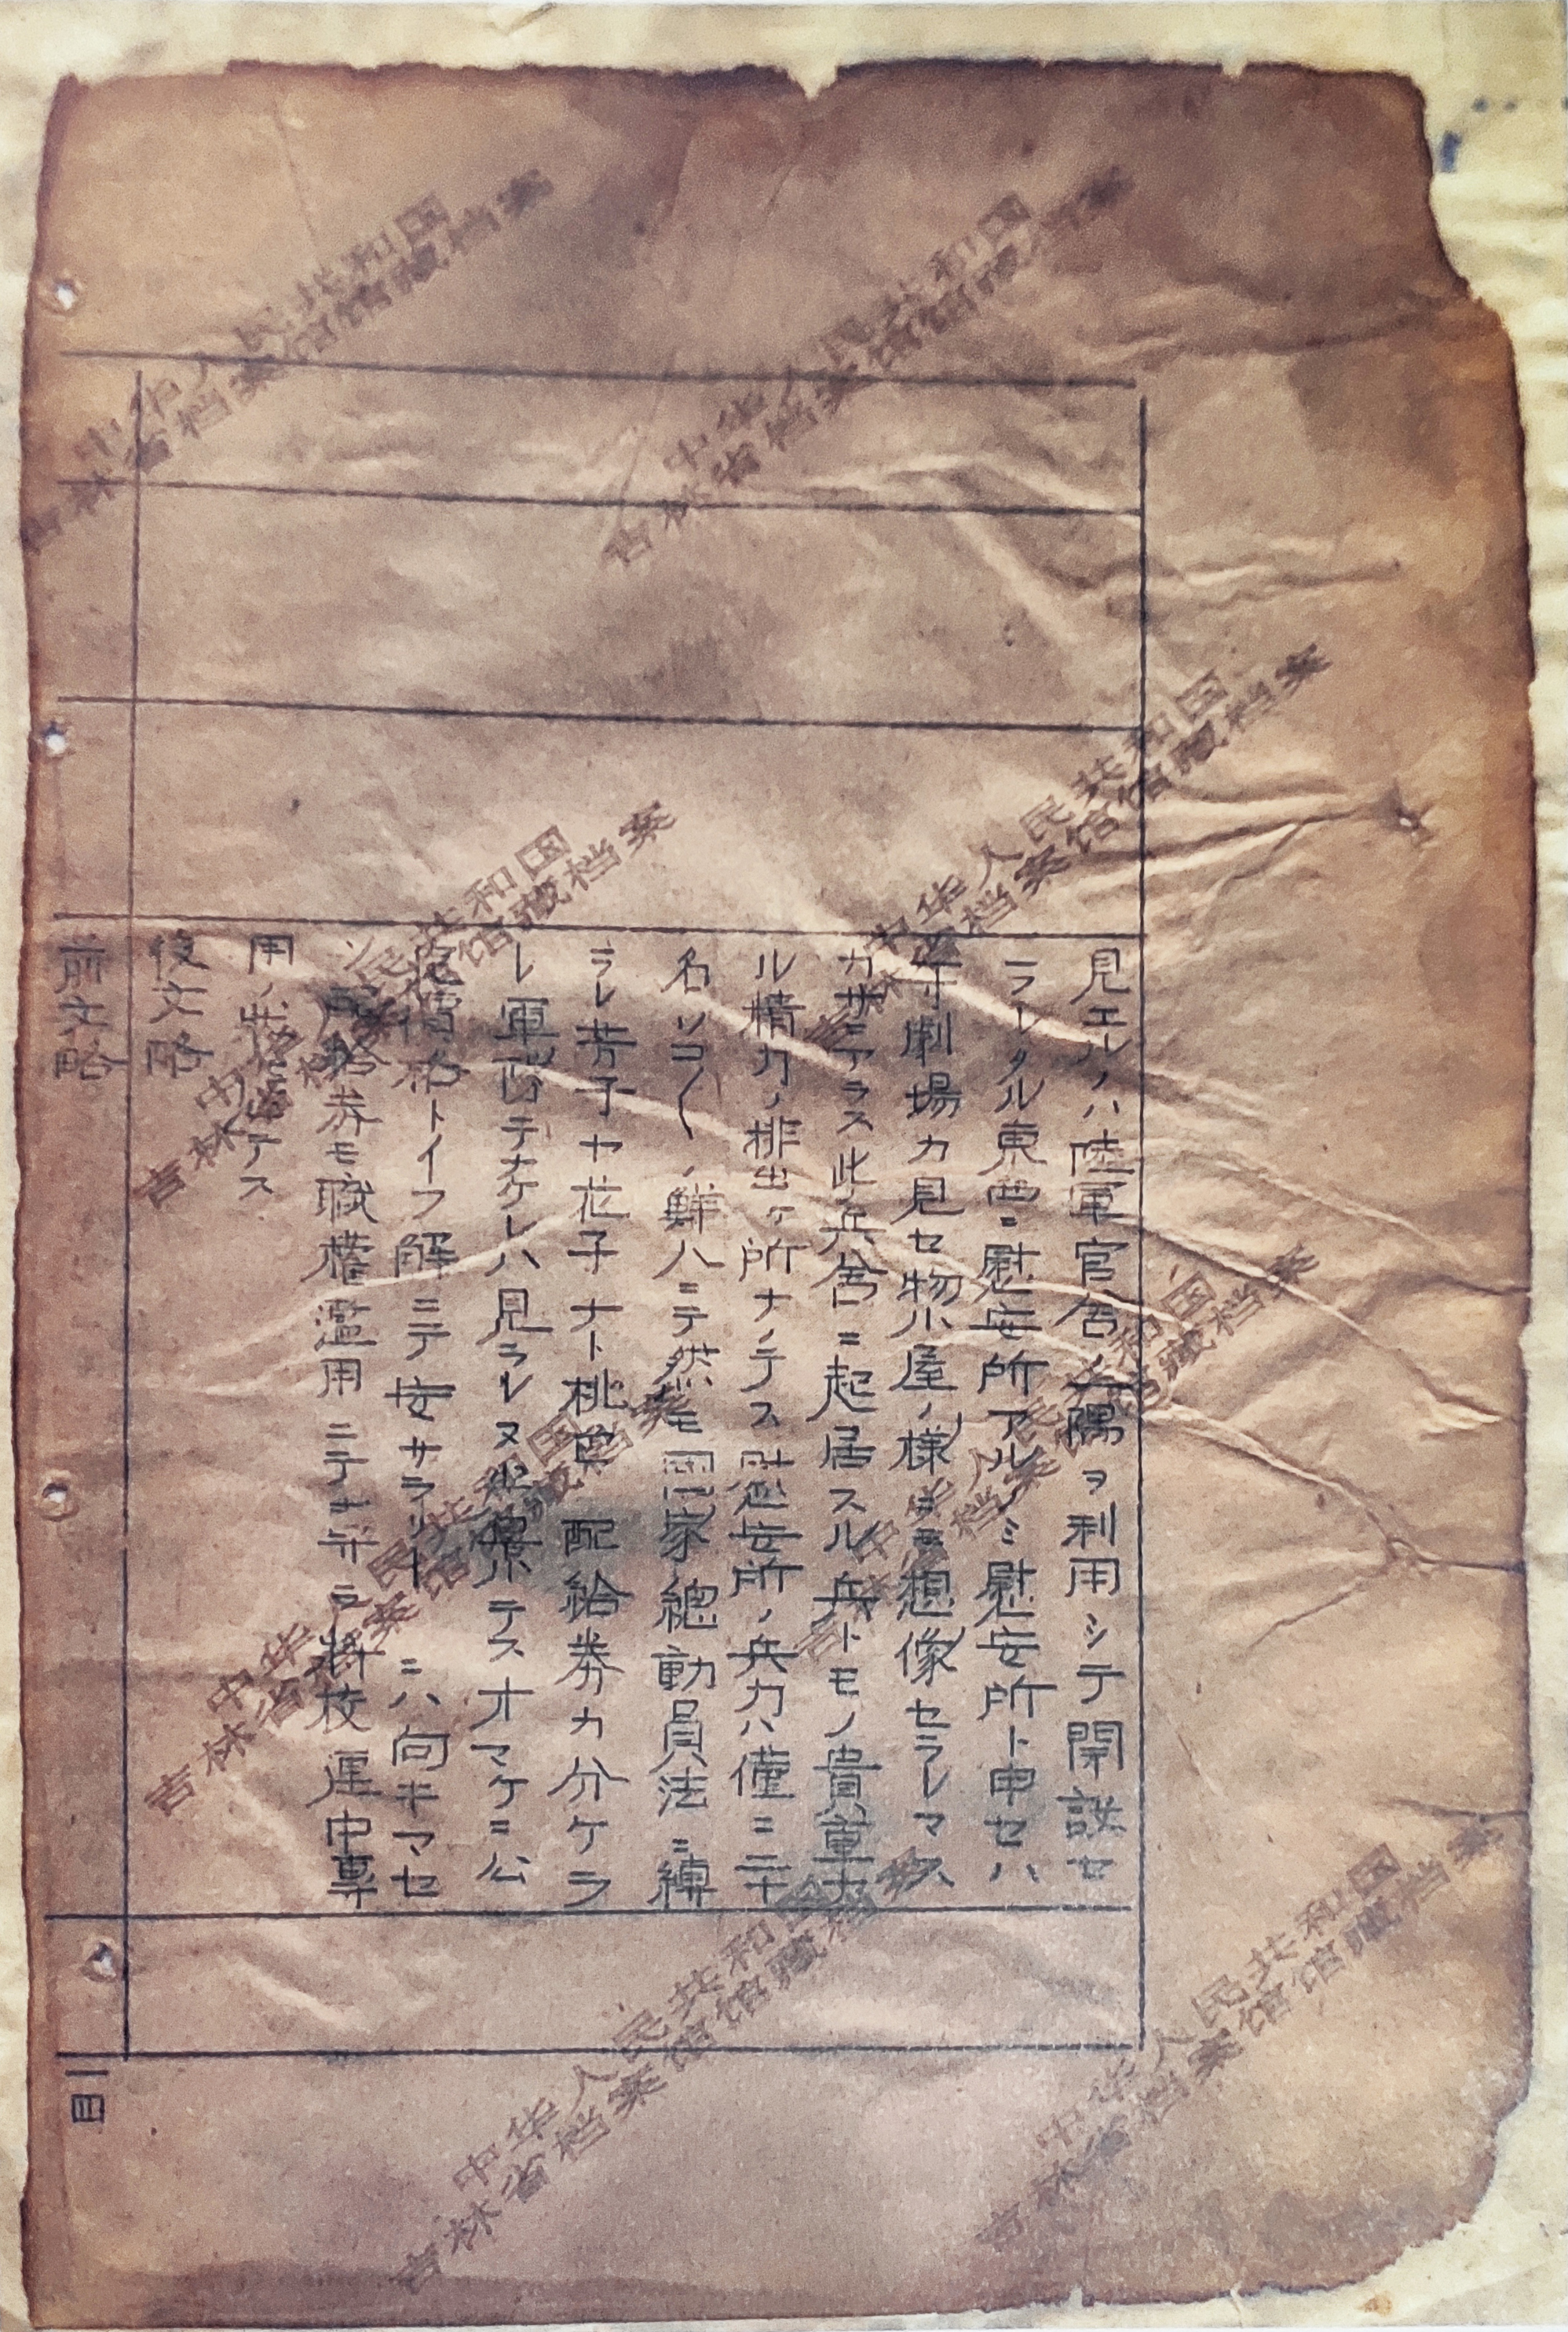 見エルノハ陸軍官舎ノ一隅ヲ利用シテ開設セ
ラレタル東西ニ慰安所アルノミ慰安所ト申セハ
劇場カ見セ物小屋ノ様ヲモ想像セラレマス
カサニアラス此ノ兵舎ニ起居スル兵トモノ貴重ナ
ル精力ノ排出ケ所ナノテス慰安所ノ兵力ハ僅ニ二十
名ソコ〱ノ鮮人ニテ然モ国家總動員法ニ縛
ラレ芳子ヤ花子ナト桃色配給券カ分ケラ
レ軍隊テナケレハ見ラレヌ光景テスオマケニ公
定價格トイフ解ニテ安サラリーニハ向キマセ
ン配給券モ職權濫用ニテ将校連中専
用ノ状態テス
後文略
前文略
一四
中华人民共和国
吉林省档案馆馆藏档案
中华人民共和国
吉林省档案馆馆藏档案
中华人民共和国
吉林省档案馆馆藏档案
中华人民共和国
吉林省档案馆馆藏档案
中华人民共和国
吉林省档案馆馆藏档案
中华人民共和国
吉林省档案馆馆藏档案
中华人民共和国
吉林省档案馆馆藏档案
中华人民共和国
吉林省档案馆馆藏档案